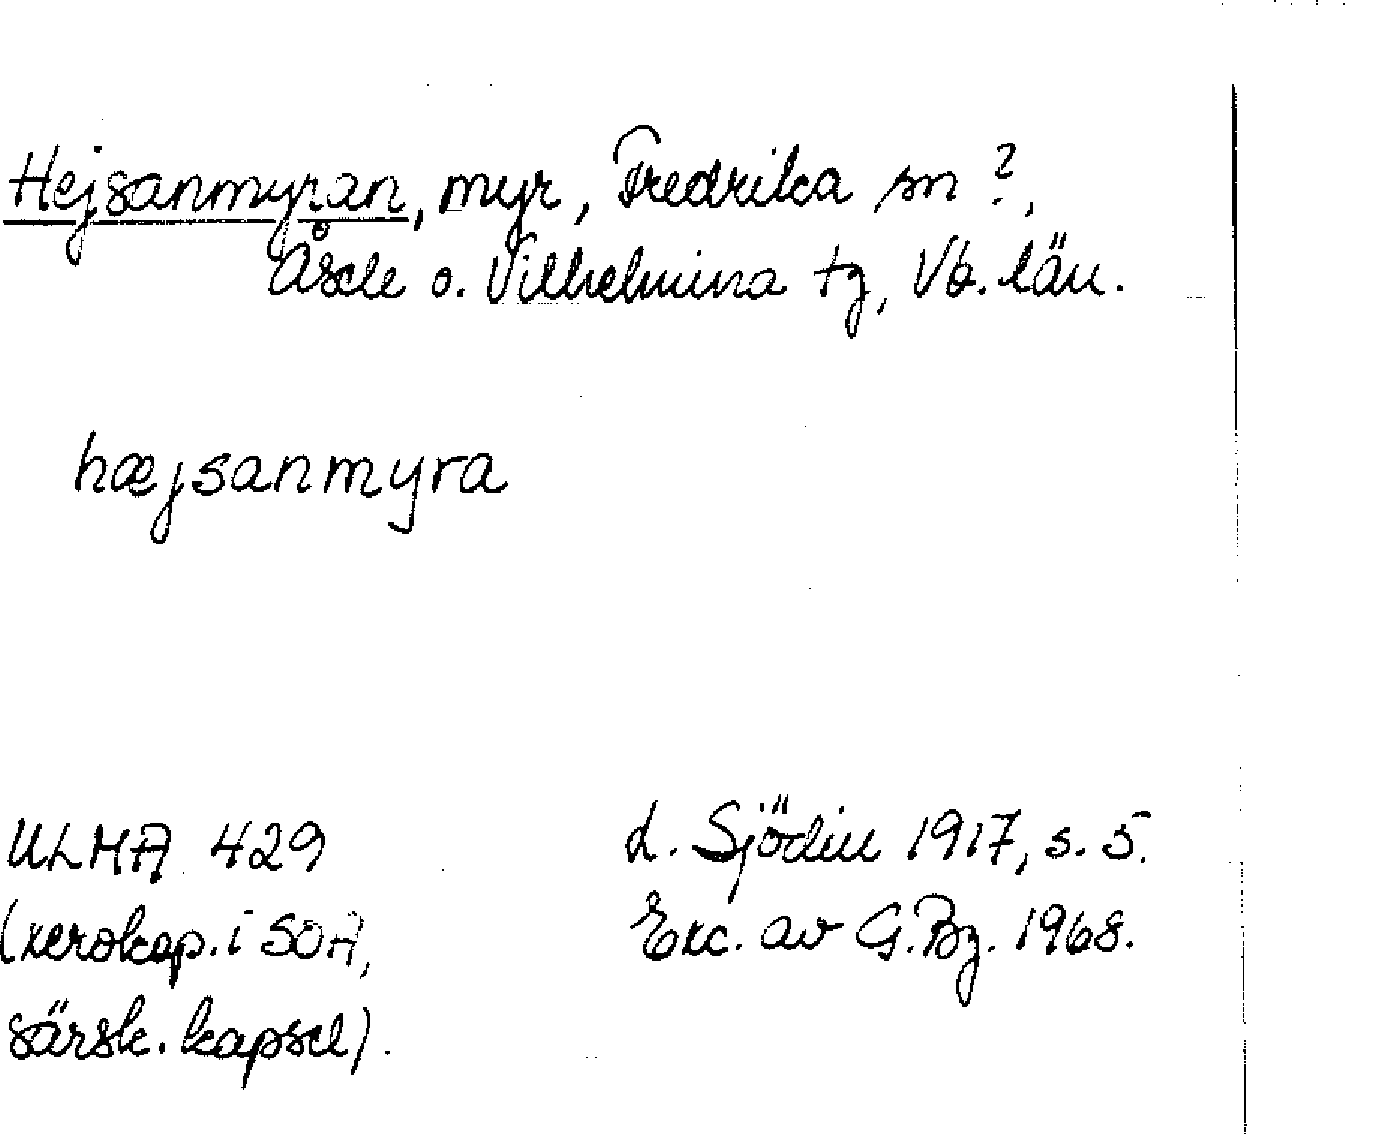 Hejsanmyran, myr, Fredrika sn?,
Åsele o. Vilhelmina tg, Vb. län.
hæjsanmyra
ULMA 429
(xerokop. i SOA,
särsk. kapsel).
L. Sjödin 1917, s. 5.
Exc. av G. Bg. 1968.